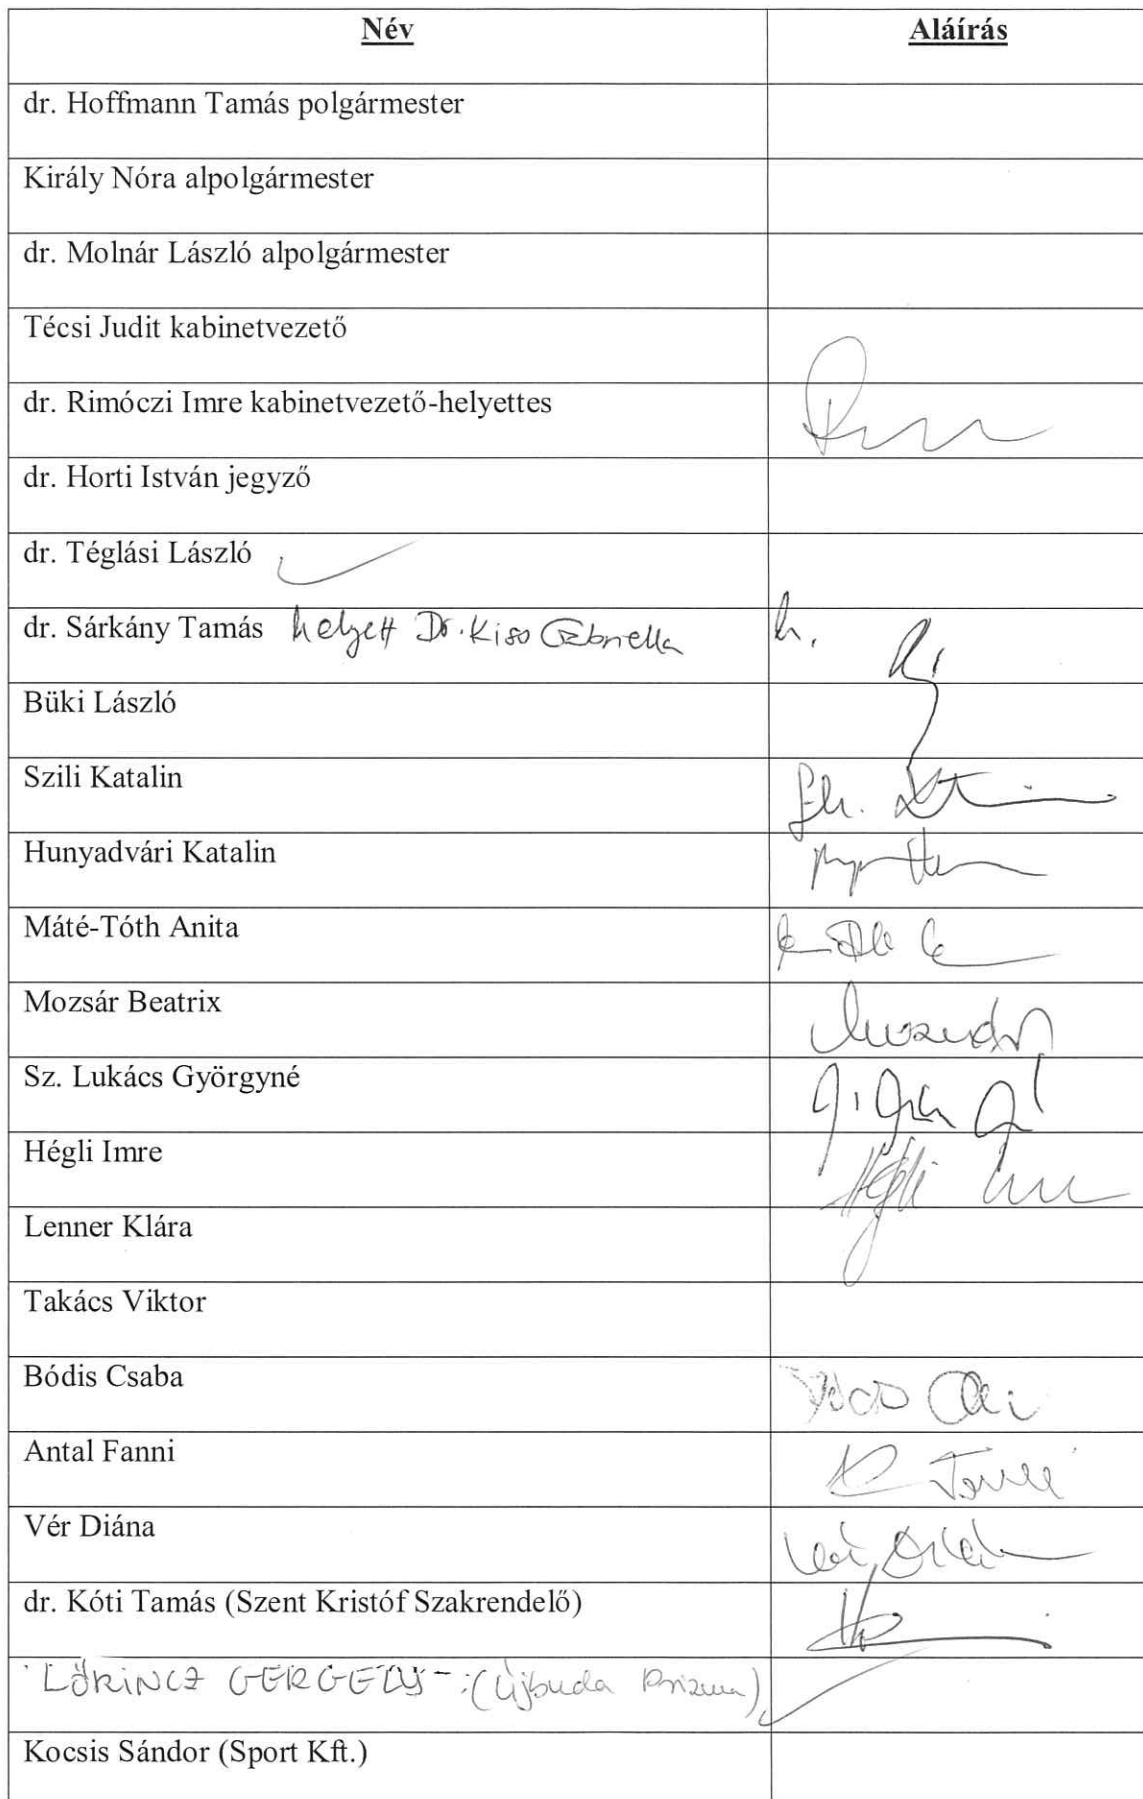 Név Aláírás
dr. Hoffmann Tamás polgármester
Király Nóra alpolgármester
dr. Molnár László alpolgármester
Técsi Judit kabinetvezető
dr. Rimóczi Imre kabinetvezető-helyettes
dr. Horti István jegyző
dr. Téglási László
dr. Sárkány Tamás helyett Dr. Kiss Gabriella
Büki László
Szili Katalin
Hunyadvári Katalin
Máté-Tóth Anita
Mozsár Beatrix
Sz. Lukács Györgyné
Hégli Imre Hégli Imre
Lenner Klára
Takács Viktor
Bódis Csaba
Antal Fanni
Vér Diána
dr. Kóti Tamás (Szent Kristóf Szakrendelő)
LŐRINCZ GERGELY - (Újbuda Prizma)
Kocsis Sándor (Sport Kft.)